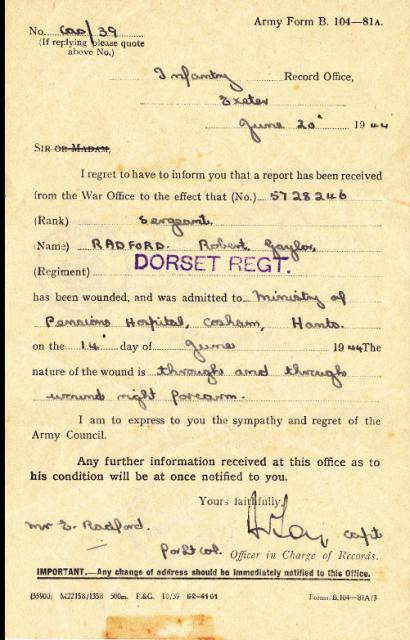 Army Form B. 104—81A.
No. Cas/39
(If replying please quote
above No.)
Infantry Record Office,
Exeter
June 20' 1944
SIR OR MADAM,
I regret to have to inform you that a report has been received
from the War Office to the effect that (No.) 5728246
(Rank) Sergeant.
(Name) RADFORD. Robert Gaylor,
(Regiment) DORSET REGT.
has been wounded, and was admitted to Ministry of
Pensions Hospital, Cosham, Hants.
on the 14' day of June 1944 The
nature of the wound is through and through
wound right forearm.
I am to express you the sympathy and regret of the
Army Council.
Any further information received at this office as to
his condition will be at once notified to you.
Yours faithfully,
Mr E. Radford. Capt
for Lt Col. Officer in Charge of Records.
IMPORTANT.—Any change of address should be immediately notified to this Office.
(55900) M22158/1358 500m. P.&G. 10/39 52-4101 Forms/B.104—81A/3